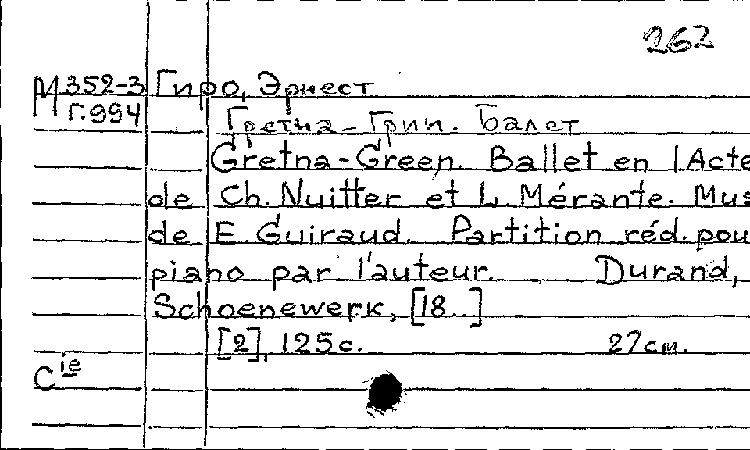 262
М352-3 Гиро, Эрнест
Г.994
Гретна-Грин. Балет
Gretna-Green. Ballet en 1 Acte
de Ch. Nuitter et L. Mérante. Mus
de E. Guiraud. Partition réd. pou
piano par l'auteur. Durand,
Schoenewerk, [18..]
[2], 125 с. 27 см.
Cie